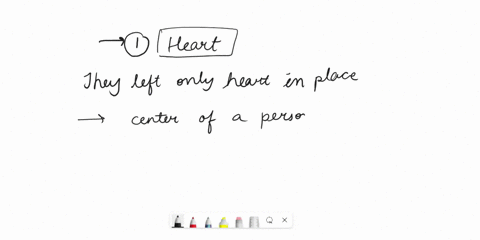 → 1 Heart
They left only heart in place
→ center of a perso